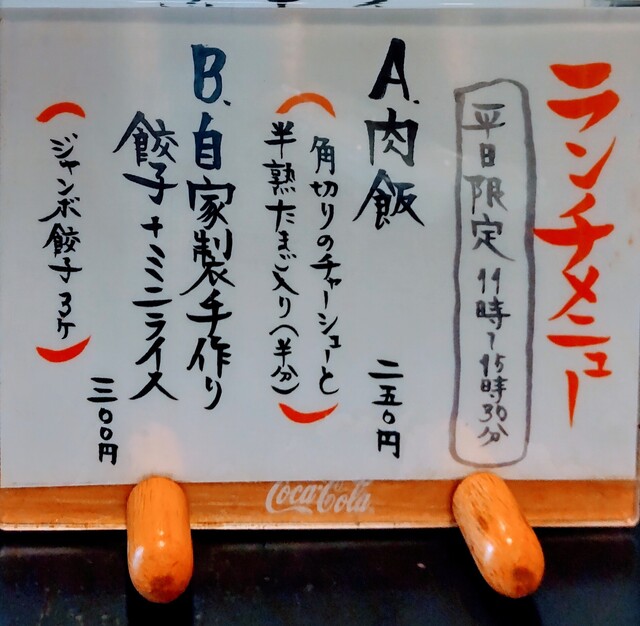 ランチメニュー
平日限定 11時~15時30分
A.肉飯
二五〇円
(角切りのチャーシューと
半熟たまご入り(半分))
B.自家製手作り
餃子+ミニライス
三〇〇円
(ジャンボ餃子3ケ)
Coca-Cola